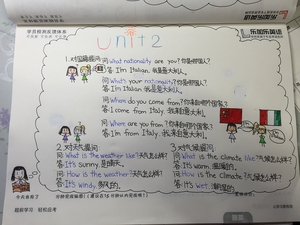 学员检测反馈体系
乐加乐英语
unit2
1.对国籍提问
问 What nationality are you? 你是哪国人?
答 I'm Italian. 我是意大利人。
问 What's your nationality? 你是哪国人?
答 I'm Italian. 我是意大利人。
问 Where do you come from? 你来自哪个国家?
答 I come from Italy. 我来自意大利。
问 Where are you from? 你来自哪个国家?
答 I'm from Italy. 我来自意大利。
2.对天气提问
问 What is the weather like? 天气怎么样?
答 It's sunny.
问 How is the weather? 天气怎么样?
答 It's windy. 多风的。
3.对气候提问
问 What is the climate like? 气候怎么样?
答 It's warm. 温暖的。
问 How is the climate? 气候怎么样?
答 It's wet. 潮湿的。
超前学习 轻松应考